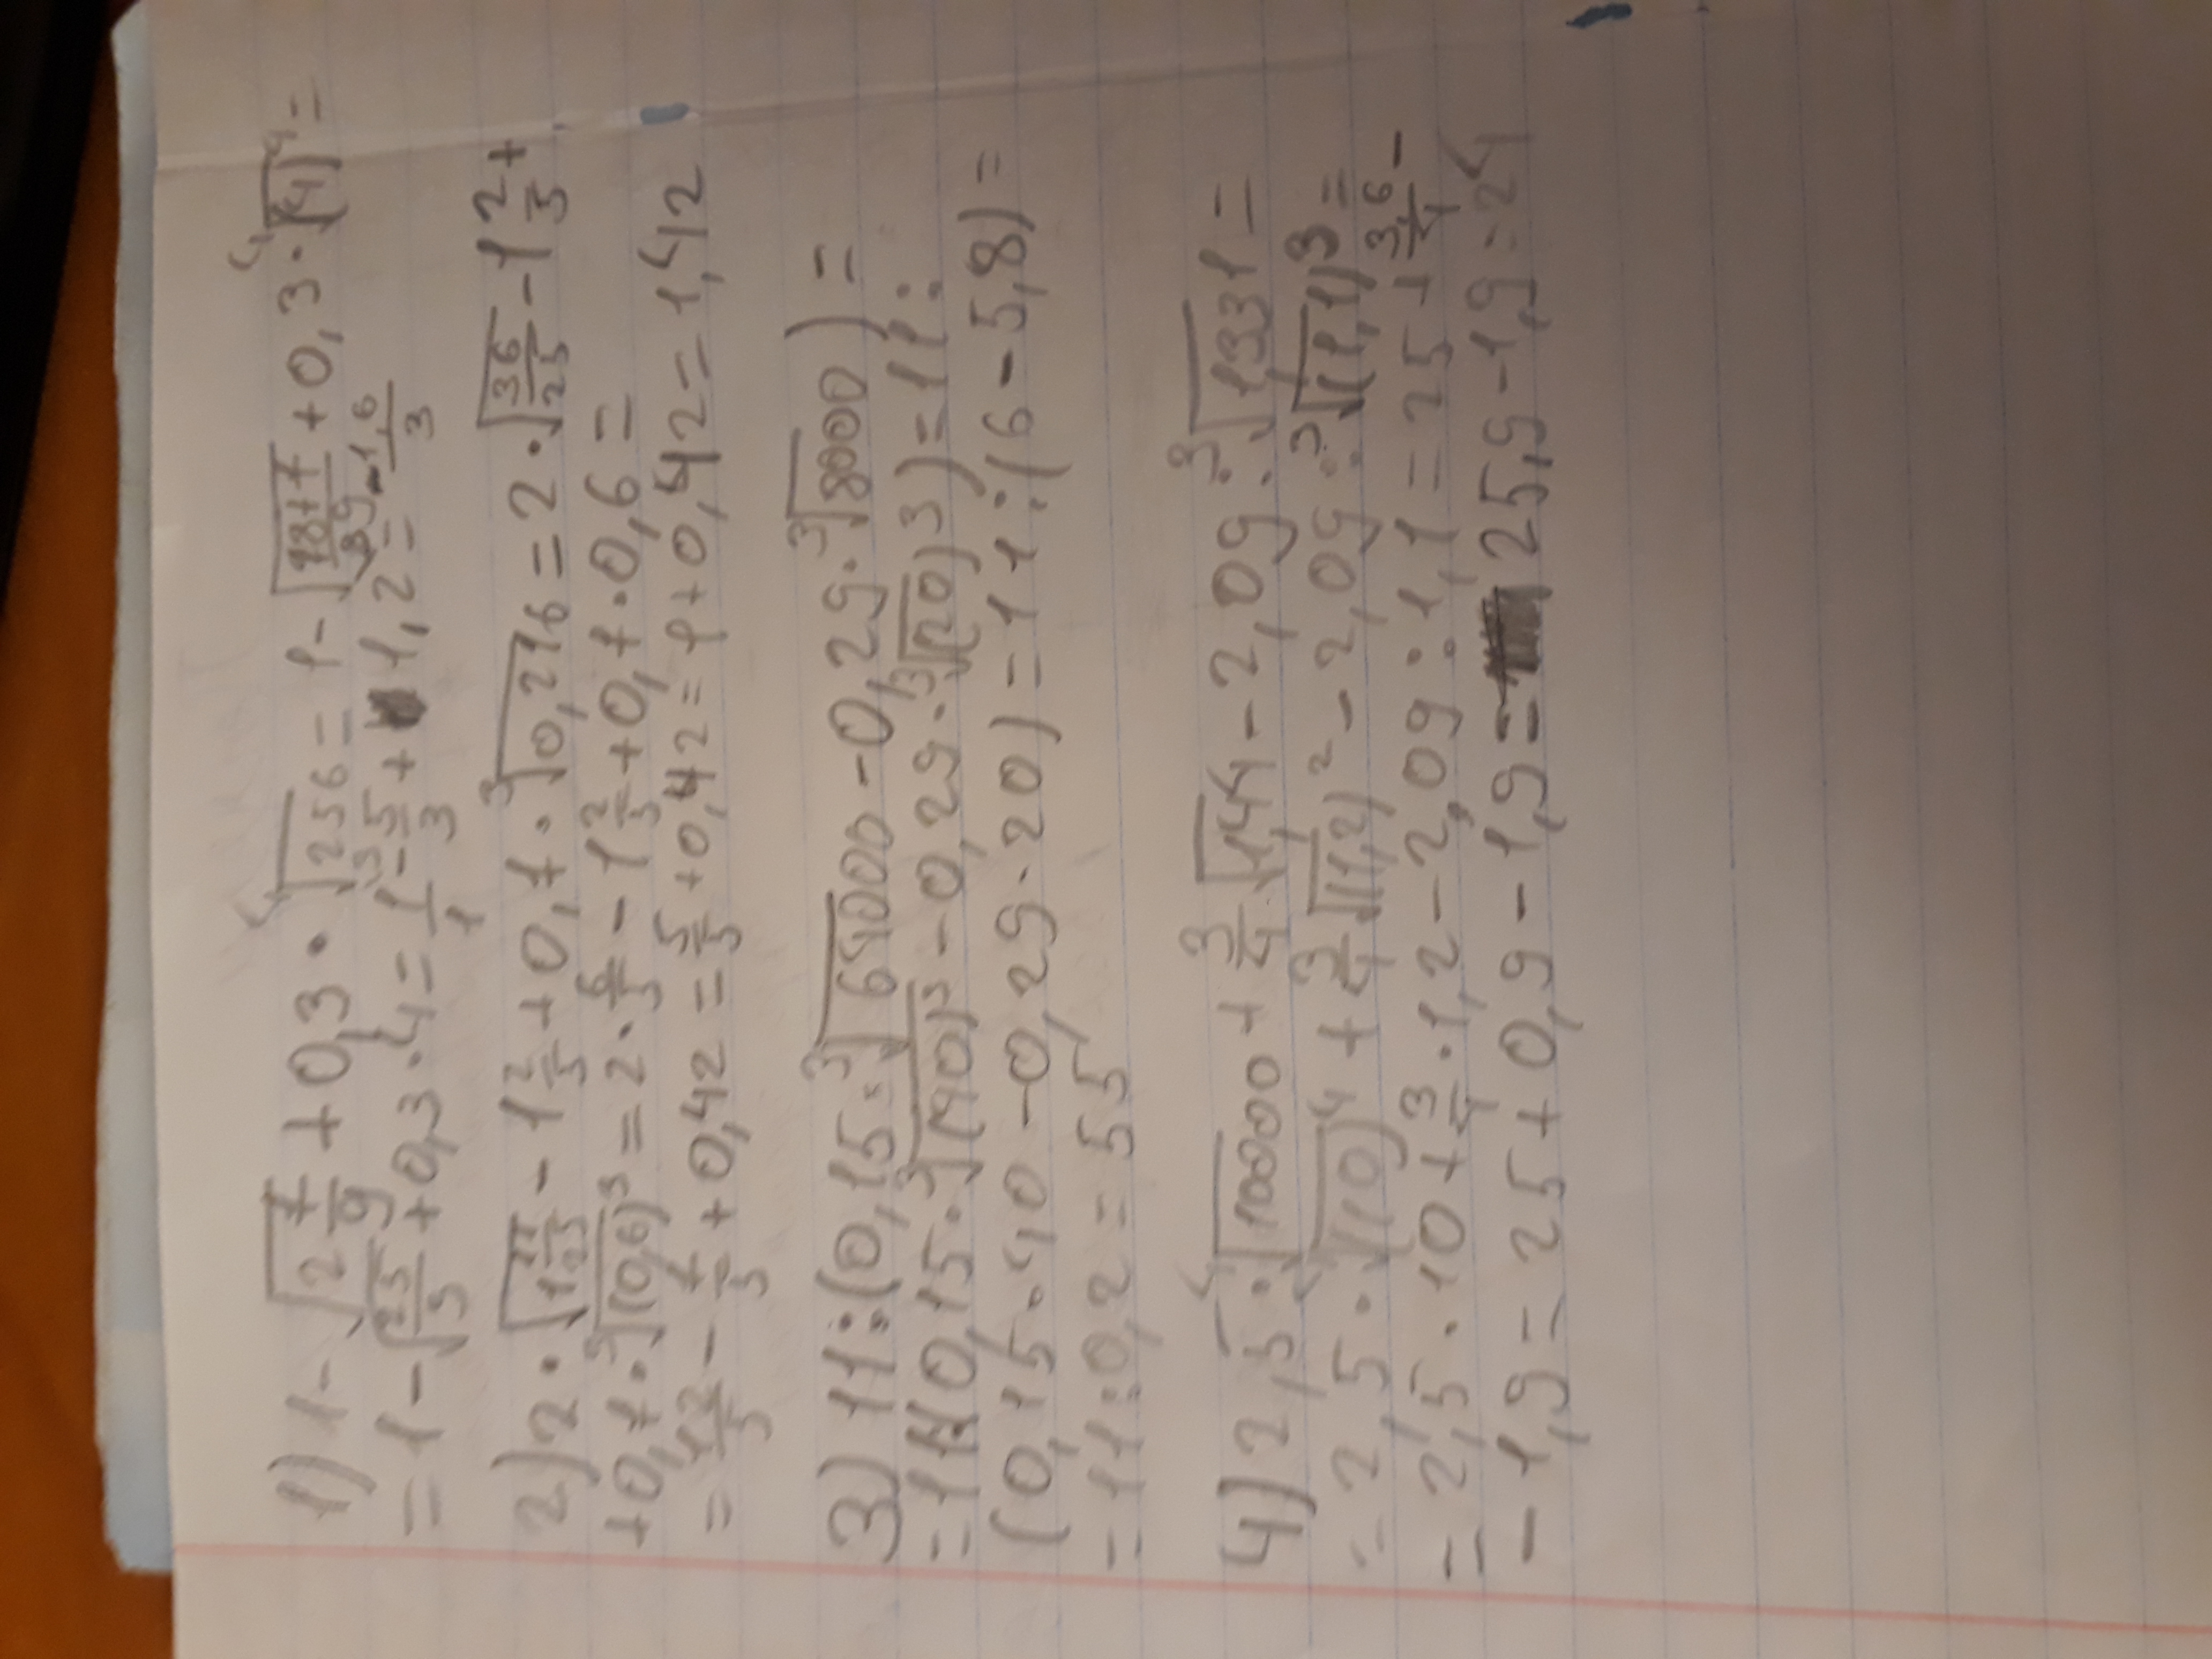 1) 1 - √(2 7/9) + 0,3 · ⁴√256 = 1 - √((18+7)/9) + 0,3 · ⁴√(4)⁴ =
= 1 - √(25/9) + 0,3 · 4 = 1/1 - 5/3 + 1,2 =
2) 2 · √(1 11/25) - 1 2/5 + 0,7 · ³√0,216 = 2 · √(36/25) - 1 2/5 +
+ 0,7 · ³√(0,6)³ = 2 · 6/5 - 1 2/5 + 0,7 · 0,6 =
= 12/5 - 7/5 + 0,42 = 5/5 + 0,42 = 1 + 0,42 = 1,42
3) 11 : (0,15 · ³√64000 - 0,29 · ³√8000) =
= 11 : (0,15 · ³√(40)³ - 0,29 · ³√(20)³) = 11 :
(0,15 · 40 - 0,29 · 20) = 11 : (6 - 5,8) =
= 11 : 0,2 = 55
4) 2,5 · ⁴√10000 + 3/4 √1,44 - 2,09 : ³√1331 =
= 2,5 · ⁴√(10)⁴ + 3/4 √(1,2)² - 2,09 : ³√(1,1)³ =
= 2,5 · 10 + 3/4 · 1,2 - 2,09 : 1,1 = 25 + 3,6/4 -
- 1,9 = 25 + 0,9 - 1,9 = 25,9 - 1,9 = 24